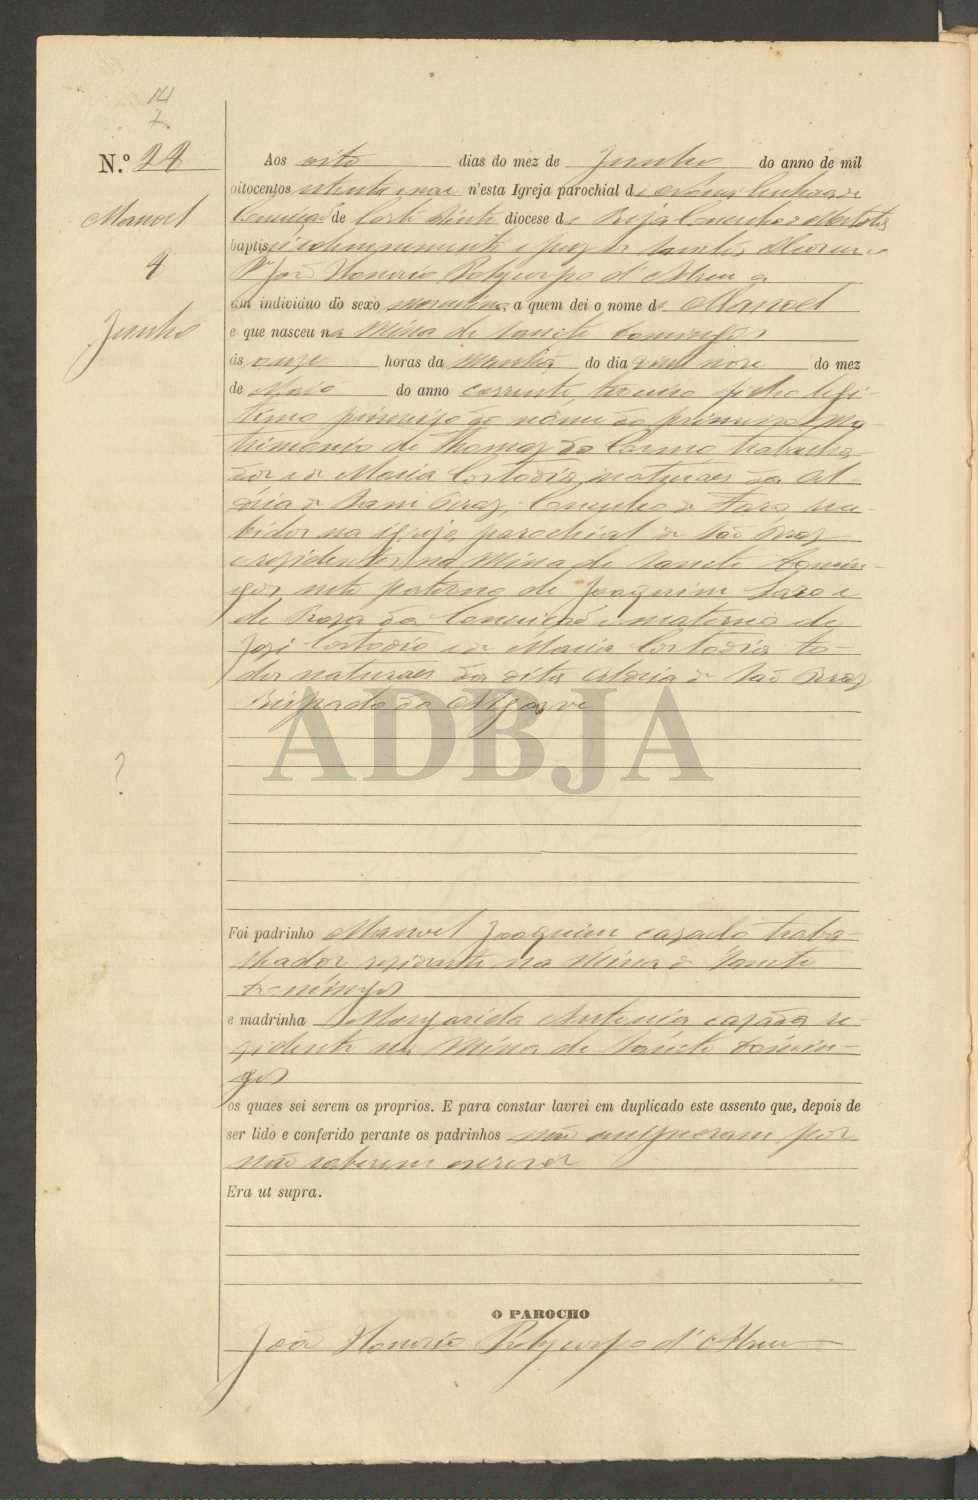 14
7
N.º 28
Manoel
8
Junho
Aos oito dias do mez de Junho do anno de mil
oitocentos setenta e nove n'esta Igreja parochial de Nossa Senhora da
Conceição de Corte Pinto diocese de Beja Concelho de Mertola
baptisei solemnemente e puz os Santos Oleos eu
P.e João Honorio Polycarpo d'Abreu a
um individuo do sexo masculino, a quem dei o nome de Manoel
e que nasceu na Mina de Sancto Domingos
ás onze horas da manhã do dia vinte nove do mez
de Maio do anno corrente, terceiro filho legi-
timo primeiro do nome do primeiro ma-
trimonio de Thomaz do Carmo, trabalha-
dor e de Maria Custodia, naturaes da Al-
deia de Sam Braz, Concelho de Faro rece-
bidos na igreja parochial de São Braz
e residentes na Mina de Sancto Domin-
gos, neto paterno de Joaquim
de Roza da Conceição e materno de
José Custodio e de Maria Custodia to-
dos naturaes da dita Aldeia de São Braz
Bispado do Algarve
ADBJA
?
Foi padrinho Manoel Joaquim cazado traba-
lhador rezidente na Mina de Sancto
Domingos
e madrinha Margarida Antonia cazada re-
zidente na Mina de Sancto Domin-
gos
os quaes sei serem os proprios. E para constar lavrei em duplicado este assento que, depois de
ser lido e conferido perante os padrinhos não assignaram por
não saberem escrever
Era ut supra.
O PAROCHO
João Honorio Polycarpo d'Abreu